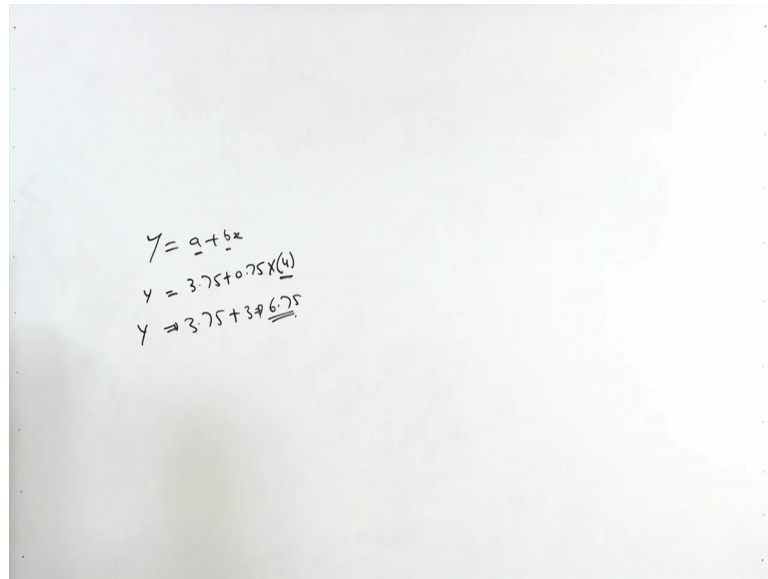 Y = a + bx
Y = 3.75 + 0.75 x (4)
Y ⇒ 3.75 + 3 ⇒ 6.75